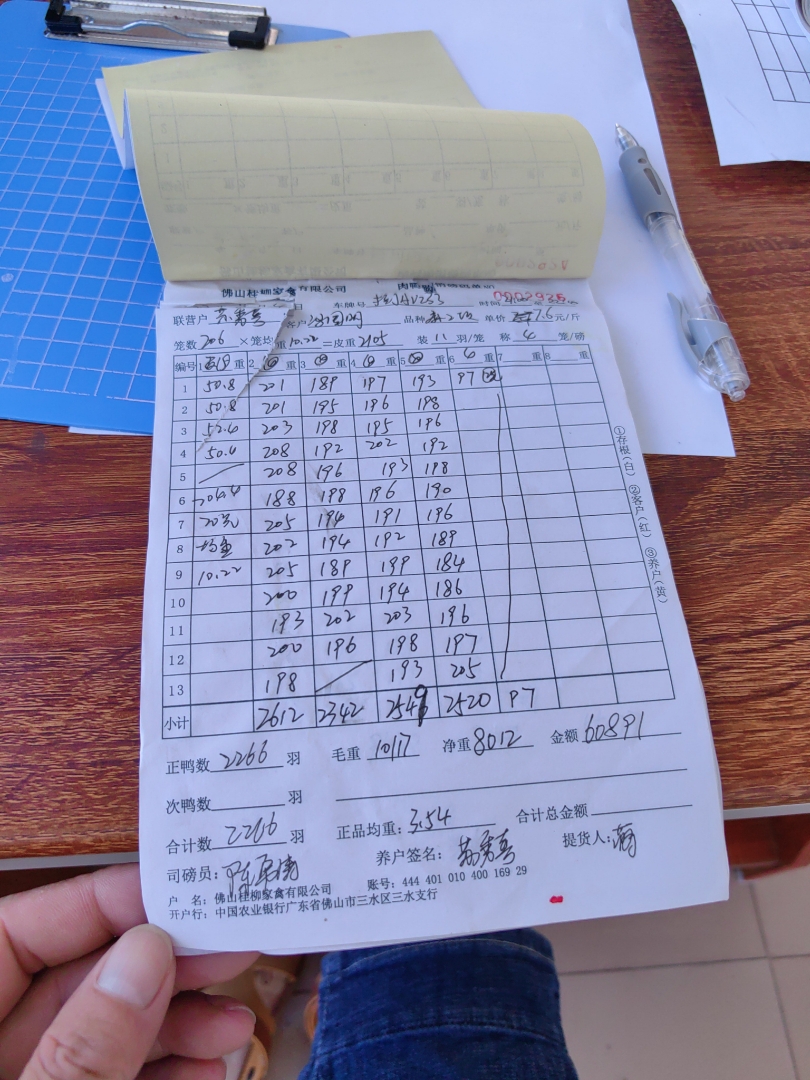 佛山桂柳家禽有限公司
0002935
联营户 客户 品种 单价 7.6 元/斤
笼数 206 ×笼均重 10.22 =皮重 2105 装 11 羽/笼 称 4 笼/磅
编号 1 重 2 重 3 重 4 重 5 重 6 重 7 重 8 重
1 50.8 201 189 197 193 97
2 50.8 201 195 196 198
3 52.4 203 198 195 196
4 50.4 208 192 202 192
5 208 196 193 188
6 204.4 188 198 196 190
7 20笼 205 194 191 196
8 均重 202 194 192 189
9 10.22 205 189 199 184
10 200 199 194 186
11 193 202 203 196
12 200 196 198 197
13 198 193 205
小计 2612 2342 2549 2520 97
正鸭数 2266 羽 毛重 10117 净重 8012 金额 60891
次鸭数 羽
合计数 2266 羽 正品均重: 3.54 合计总金额
司磅员: 养户签名: 提货人:
户 名: 佛山桂柳家禽有限公司 账号: 444 401 010 400 169 29
开户行: 中国农业银行广东省佛山市三水区三水支行
①存根(白) ②客户(红) ③养户(黄)